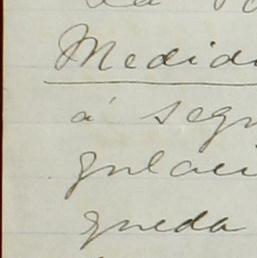 Medid
á seg
gulaci
queda